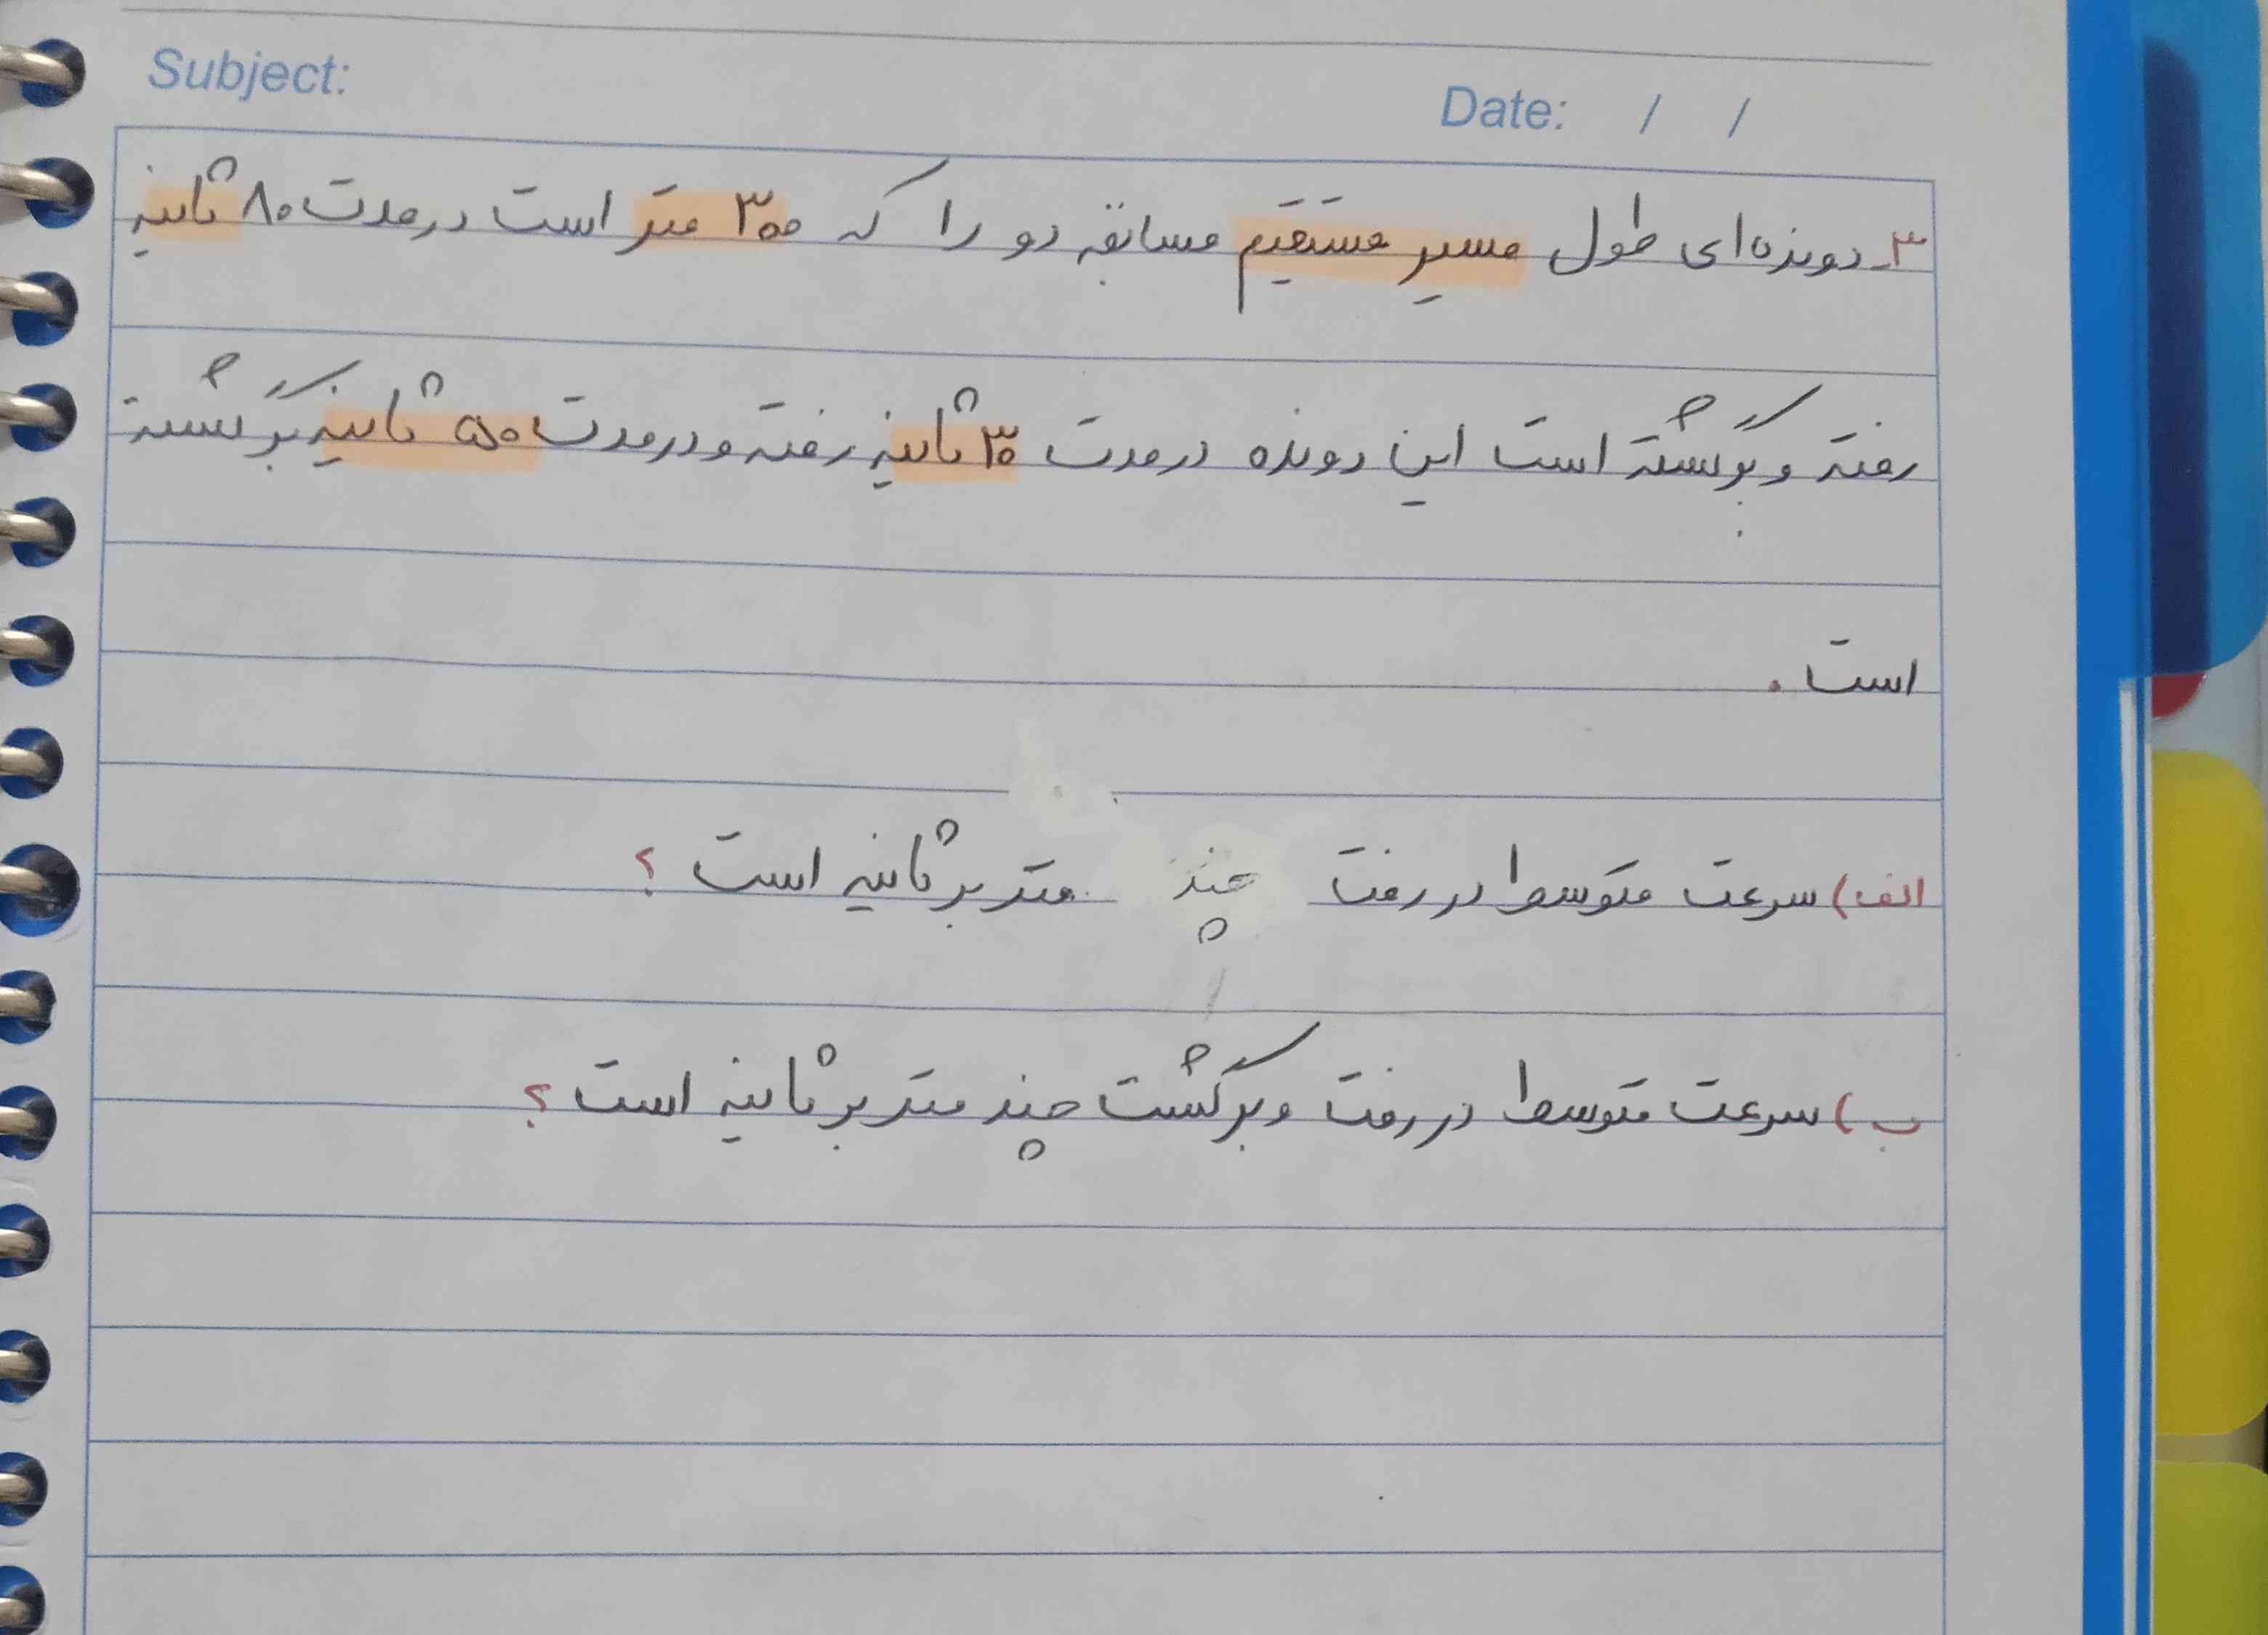 Subject:
Date: / /
۳ـ دونده‌ای طول مسیر مستقیم مسابقه دو را که ۳۰۰ متر است در مدت ۸۰ ثانیه
رفته و برگشته است این دونده در مدت ۳۰ ثانیه رفته و در مدت ۵۰ ثانیه برگشته
است .
الف) سرعت متوسط در رفت چند متر بر ثانیه است ؟
ب) سرعت متوسط در رفت و برگشت چند متر بر ثانیه است ؟